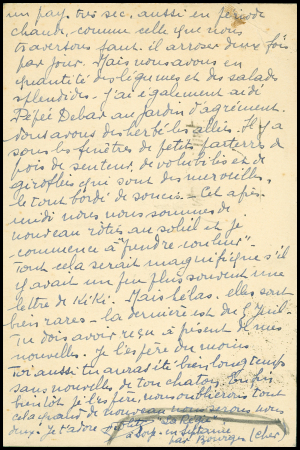 un pays très sec, aussi en période
chaude, comme celle que nous
traversons faut-il arroser deux fois
par jour. Mais nous avons en
quantité des légumes et des salades
splendides. J'ai également aidé
Pépée Debar au jardin d'agrément.
Nous avons désherbé les allées. Il y a
sous les fenêtres de petits parterres de
pois de senteur, de volubilis et de
giroflées qui sont des merveilles,
le tout bordé de soucis. Cet après-
midi nous nous sommes de
nouveau rôties au soleil et je
commence à "prendre couleur".
Tout cela serait magnifique s'il
y avait un peu plus souvent une
lettre de Kiki. Mais hélas, elles sont
bien rares - la dernière est du
Tu dois avoir reçu à présent de mes
nouvelles. Je l'espère du moins
Toi aussi tu auras été bien longtemps
sans nouvelles de ton chaton. Enfin
bientôt je l'espère, nous oublierons tout
cela quand de nouveau nous serons nous
deux. Je t'adore
par Bourges (Cher)